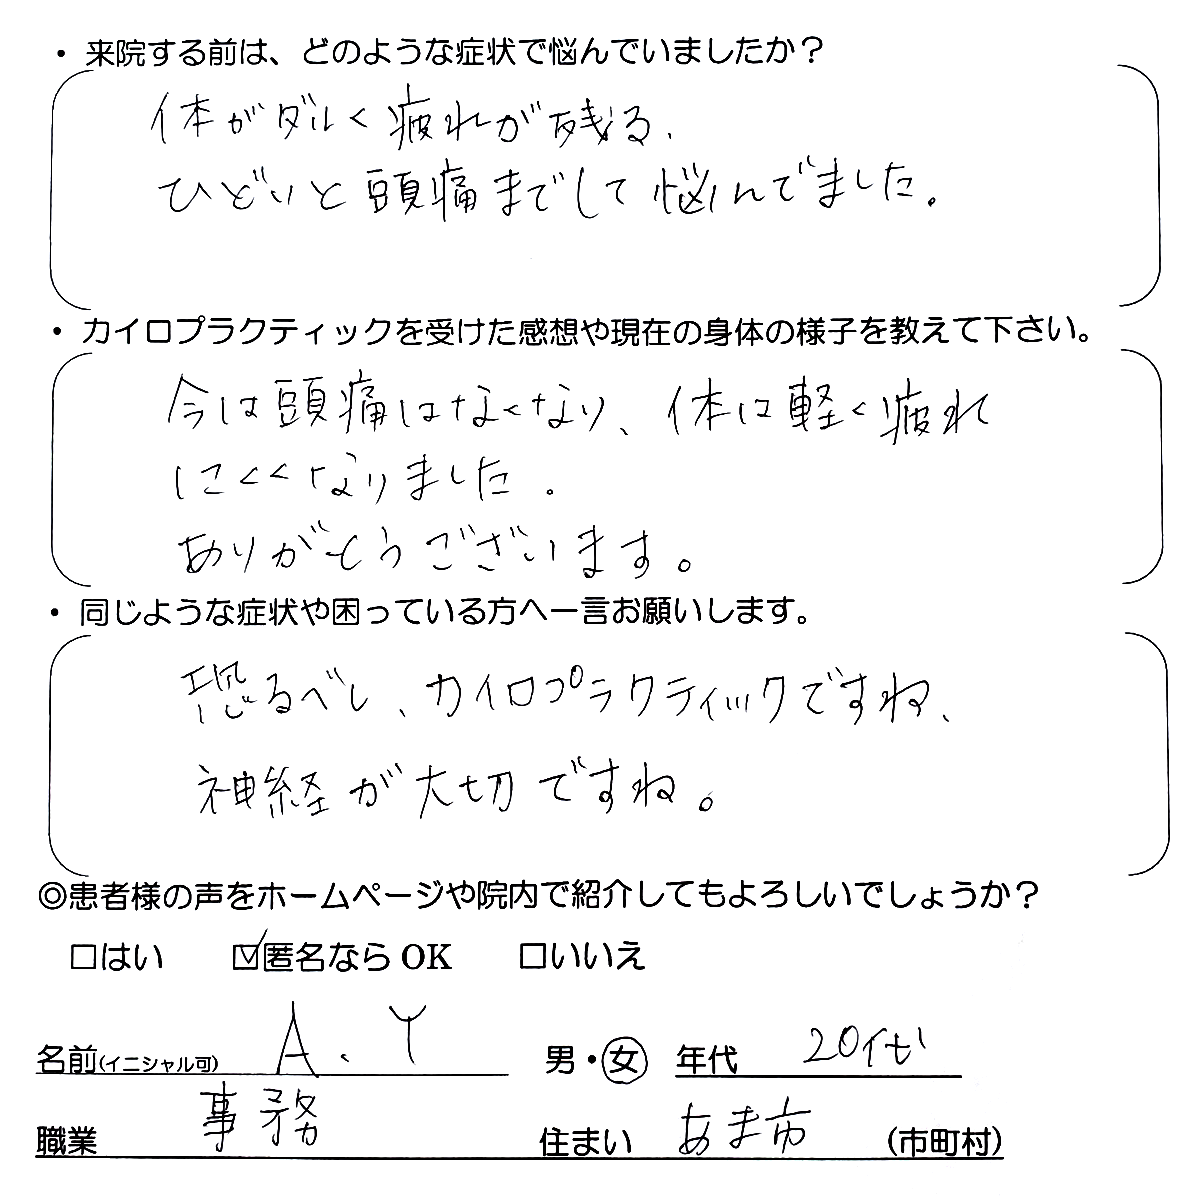 ・来院する前は、どのような症状で悩んでいましたか？
体がダルく疲れが残る、
ひどいと頭痛までして悩んでました。
・カイロプラクティックを受けた感想や現在の身体の様子を教えて下さい。
今は頭痛はなくなり、体は軽く疲れ
にくくなりました。
ありがとうございます。
・同じような症状や困っている方へ一言お願いします。
恐るべし、カイロプラクティックですね、
神経が大切ですね。
◎患者様の声をホームページや院内で紹介してもよろしいでしょうか？
□はい ☑匿名ならOK □いいえ
名前(イニシャル可) A、Y 男・女 年代 20代
職業 事務 住まい あま市 (市町村)